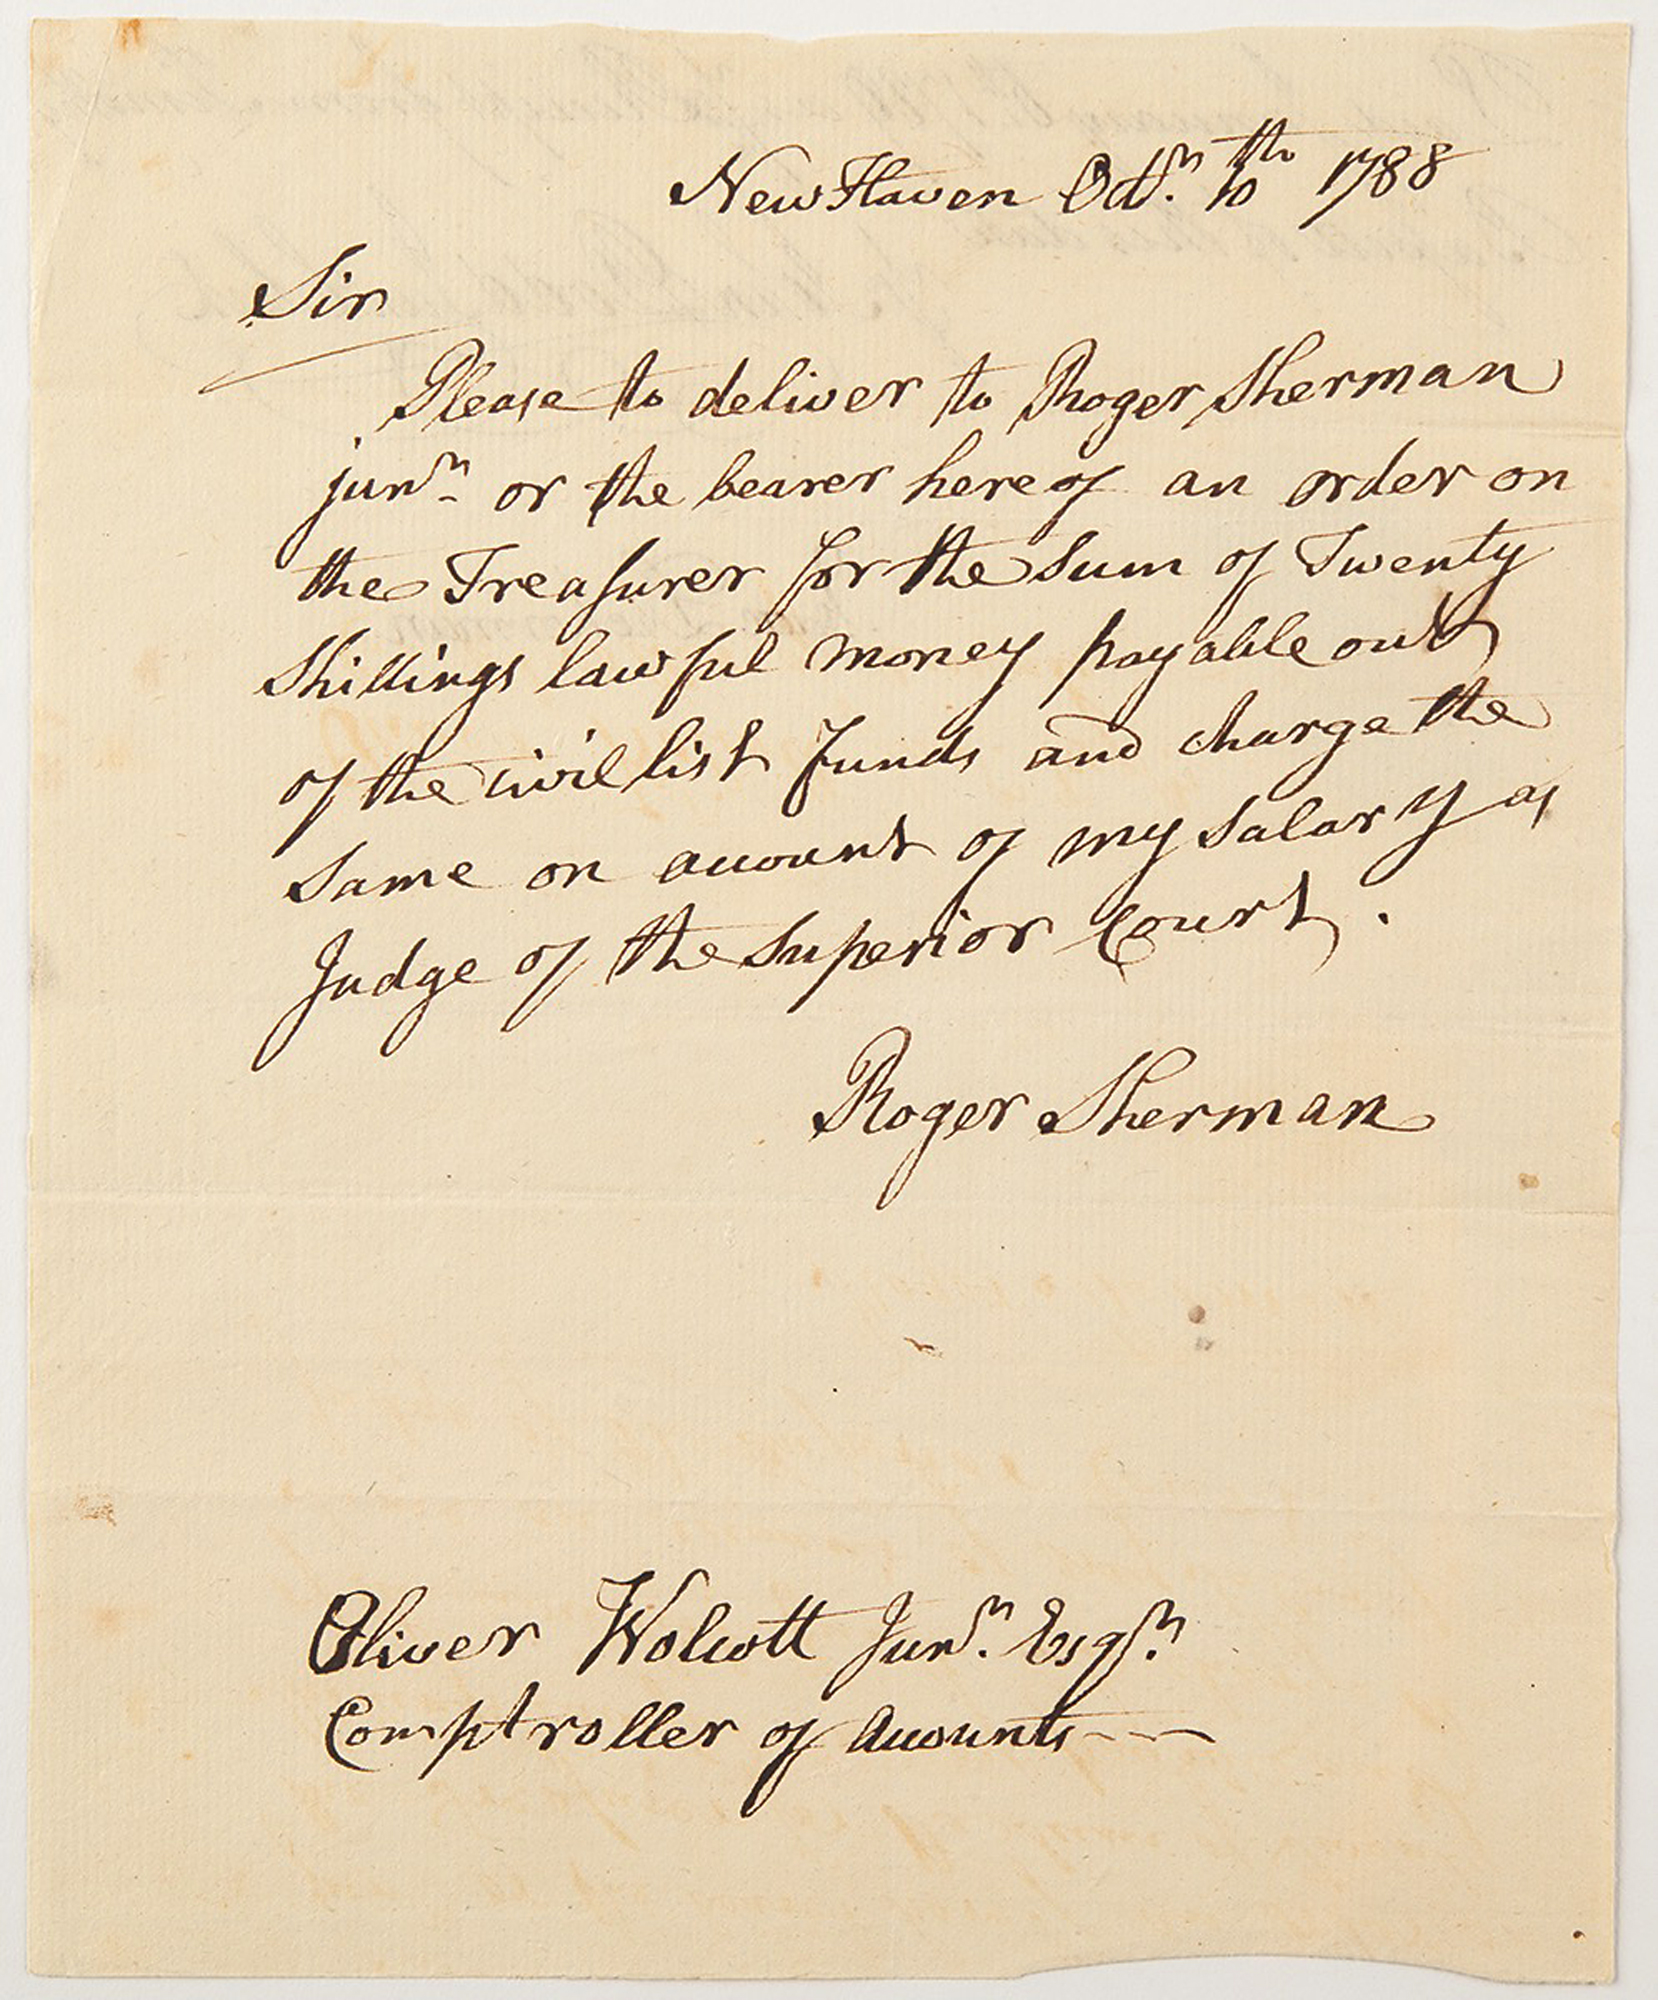 New Haven Octr. 10th 1788
Sir
Please to deliver to Roger Sherman
junr. or the bearer hereof an order on
the Treasurer for the Sum of Twenty
Shillings lawful money payable out
of the civil list Funds and charge the
Same on account of my Salary as
Judge of the Superior Court.
Roger Sherman
Oliver Wolcott Junr. Esqr.
Comptroller of Accounts